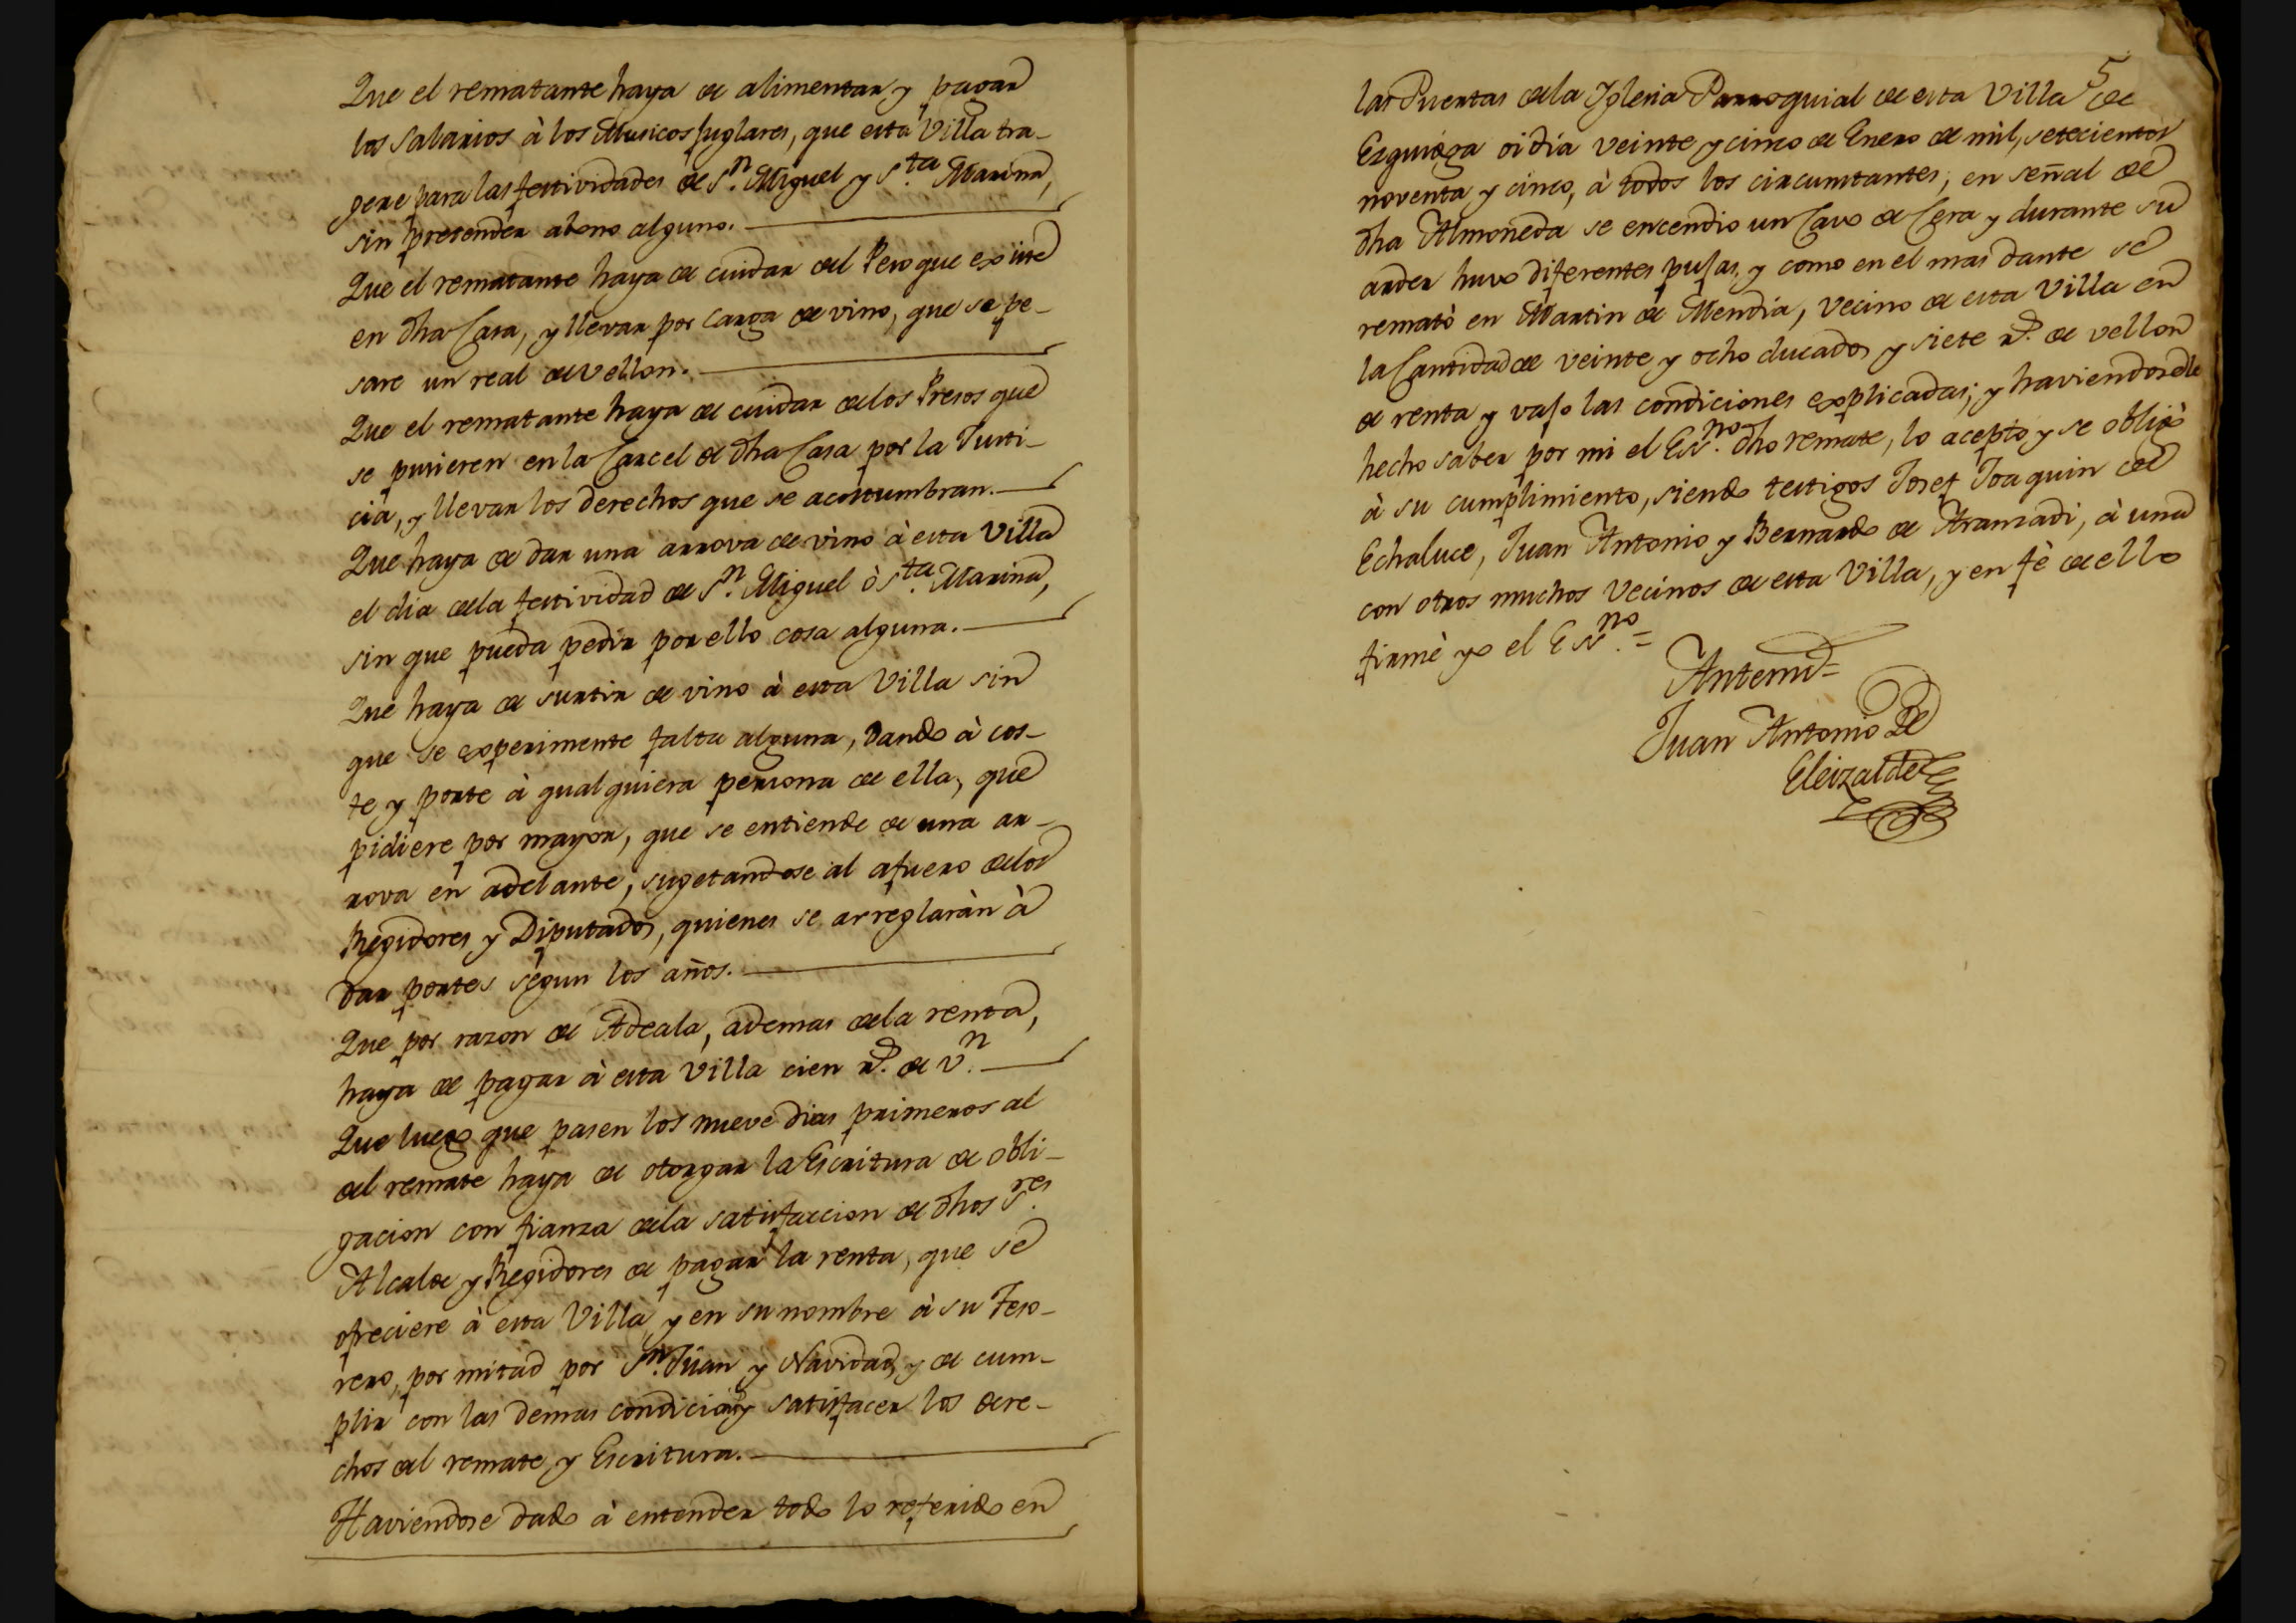 Que el rematante haya de alimentar y pagar
los salarios à los Musicos Juglares, que esta Villa tra-
gere para las festividades de Sn. Miguel y Sta. Marina,
sin pretender abono alguno.
Que el rematante haya de cuidar del Peso que existe
en dha Casa, y llevar por carga de vino, que se pe-
sare un real de vellon.
Que el rematante haya de cuidar de los Presos que
se pusieren en la Carcel de dha Casa por la Justi-
cia, y llevar los derechos que se acostumbran.
Que haya de dar una arrova de vino à esta Villa
el dia de la festividad de Sn. Miguel ò Sta. Marina,
sin que pueda pedir por ello cosa alguna.
Que haya de surtir de vino à esta Villa sin
que se experimente falta alguna, dando à cos-
te y porte à qualquiera persona de ella, que
pidiere por mayor, que se entiende de una ar-
rova en adelante, sugetandose al afuero de los
Regidores y Diputados, quienes se arreglaràn à
dar portes segun los años.
Que por razon de Adeala, ademas de la renta,
haya de pagar à esta Villa cien rs. de vn.
Que luego que pasen los nueve dias primeros al
del remate haya de otorgar la Escritura de obli-
gacion con fianza de la satisfaccion de dhos Sres.
Alcalde y Regidores de pagar la renta, que se
ofreciere à esta Villa, y en su nombre à su Teso-
rero, por mitad por Sn. Juan y Navidad, y de cum-
plir con las demas condicios y satisfacer los dere-
chos del remate, y Escritura.
Haviendose dado à entender todo lo referido en
5
las Puertas de la Iglesia Parroquial de esta Villa de
Ezquioga oi dia veinte y cinco de Enero de mil, setecientos
noventa y cinco, à todos los circunstantes, en señal de
dha Almoneda se encendio un Cavo de Cera y durante su
arder huvo diferentes pujas, y como en el mas dante se
rematò en Martin de Mendia, Vecino de esta Villa en
la Cantidad de veinte y ocho ducados y siete rs. de vellon
de renta y vajo las condiciones explicadas; y haviendosele
hecho saber por mi el Esno. dho remate, lo aceptò y se obligò
à su cumplimiento, siendo testigos Josef Joaquin de
Echaluce, Juan Antonio y Bernardo de Aranzadi, à una
con otros muchos Vecinos de esta Villa, y en fè de ello
firmè yo el Esno. =
Antemi =
Juan Antonio De
Eleizalde